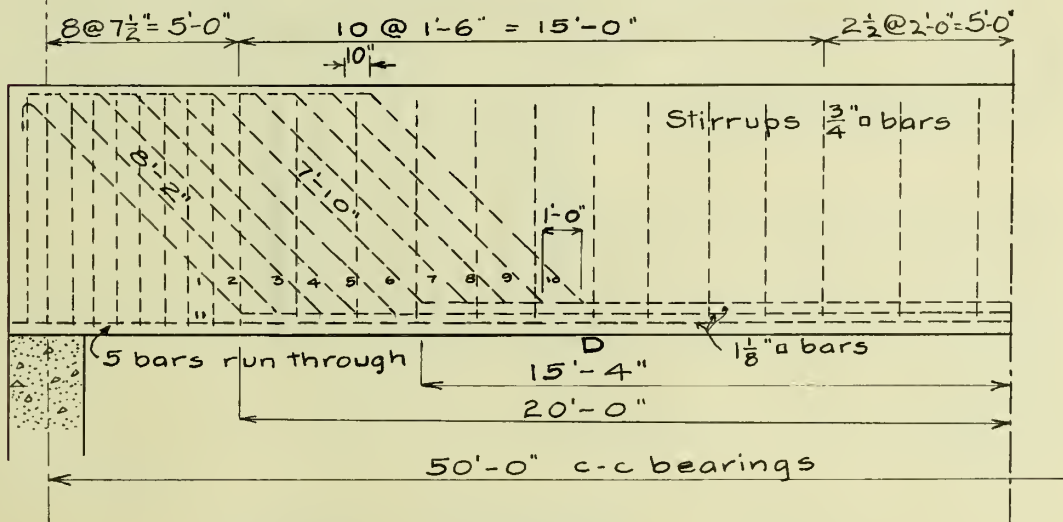 8@7½"= 5'-0"
10 @ 1'-6" = 15'-0"
2½@2'-0"=5'-0"
10"
Stirrups ¾"▫ bars
8'-2"
7'-10"
1'-0"
1 2 3 4 5 6 7 8 9 10
11
5 bars run through
1⅛"▫ bars
D
15'-4"
20'-0"
50'-0" c-c bearings